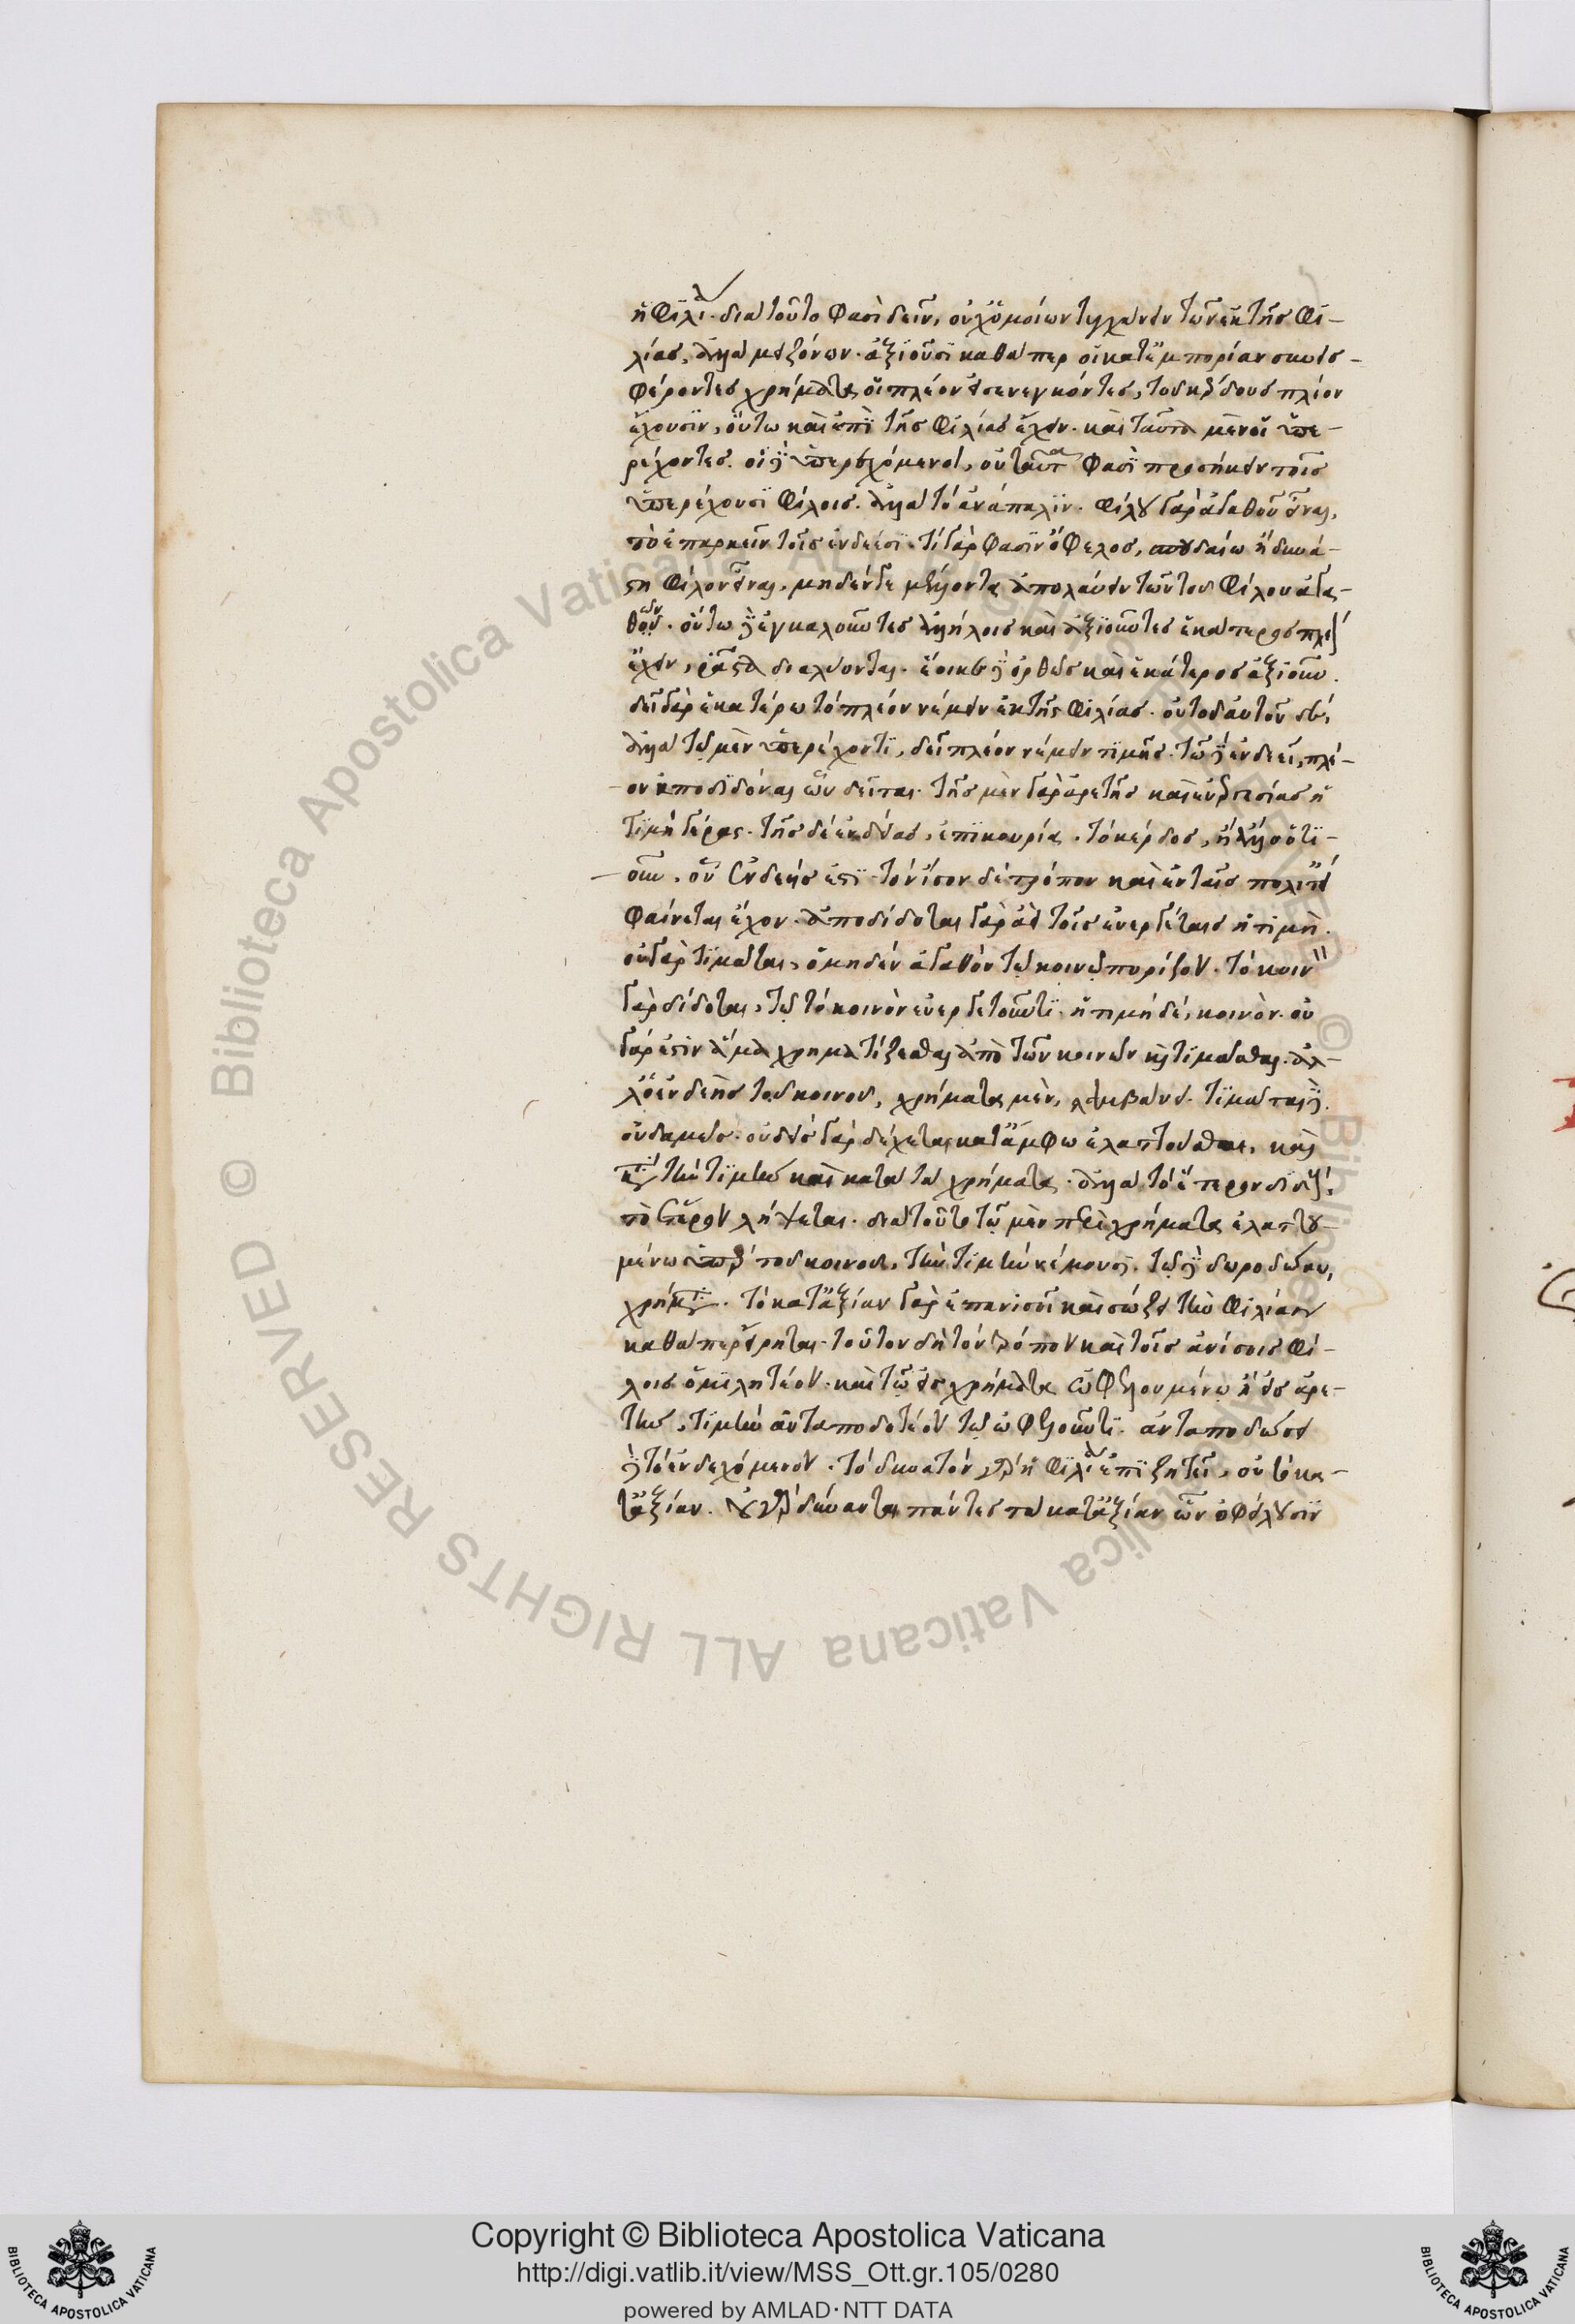 ἡ φιλία. διὰ τοῦτο φασὶ δεῖν, οὐχ ὁμοίων τυγχάνειν τῶν ἐκ τῆς φι-
λίας, ἀλλὰ μειζόνων. ἀξιοῦσι καθάπερ οἱ κατ' ἐμπορίαν συνεισ-
φέροντες χρήματα οἱ πλέον εἰσενεγκόντες, τοῦ κέρδους πλέον
ἔχουσιν, οὕτω καὶ ἐπὶ τῆς φιλίας ἔχειν. καὶ ταῦτα μὲν οἱ ὑπε-
ρέχοντες. οἱ δὲ ὑπερεχόμενοι, οὐ ταῦτα φασὶ προσήκειν τοῖς
ὑπερέχουσι φίλοις. ἀλλὰ τὸ ἀνάπαλιν. φίλου γὰρ ἀγαθοῦ εἶναι,
τὸ ἐπαρκεῖν τοῖς ἐνδεέσι. τί γὰρ φασὶν ὄφελος, σπουδαίω ἢ δυνά-
στη φίλον εἶναι, μηδέν γε μέλλοντα ἀπολαύειν τῶν τοῦ φίλου ἀγα-
θῶν. οὕτω δὲ ἐγκαλοῦντες ἀλλήλοις καὶ ἀξιοῦντες ἑκάτερος πλέον
ἔχειν, ῥᾶστα διαλύονται. ἔοικε δὲ ὀρθῶς καὶ ἑκάτερος ἀξιοῦν.
δεῖ γὰρ ἑκατέρω τὸ πλέον νέμειν ἐκ τῆς φιλίας. οὐ τοῦ αὐτοῦ δέ,
ἀλλὰ τῷ μὲν ὑπερέχοντι, δεῖ πλέον νέμειν τιμῆς. τῶ δὲ ἐνδεεῖ, πλέ-
ον ἀποδιδόναι ὧν δεῖται. τῆς μὲν γὰρ ἀρετῆς καὶ εὐεργεσίας ἡ
τιμὴ γέρας. τῆς δὲ ἐνδείας, ἐπικουρία. τὸ κέρδος, ἢ ἄλλο ὅτι-
οῦν, οὗ ἐνδεής ἐστι. τὸν ἴσον δὲ τρόπον καὶ ἐν ταῖς πολιτεί
φαίνεται ἔχον. ἀποδίδοται γὰρ ἀεὶ τοῖς εὐεργέταις ἡ τιμή.
οὐ γὰρ τιμᾶται, ὁ μηδὲν ἀγαθὸν τῷ κοινῷ πορίζον. τὸ κοινὸν
γὰρ δίδοται, τῷ τὸ κοινὸν εὐεργετοῦντι. ἡ τιμὴ δέ, κοινόν. οὐ
γάρ ἐστιν ἅμα χρηματίζεσθαι ἀπὸ τῶν κοινῶν καὶ τιμᾶσθαι. ἀλ-
λ' ὁ ἐνδεὴς τοῦ κοινοῦ, χρήματα μὲν, λαμβάνει. τιμᾶται δὲ
οὐδαμῶς. οὐδεὶς γὰρ δέχεται κατ' ἄμφω ἐλαττοῦσθαι, καὶ
κατὰ τὴν τιμὴν καὶ κατὰ τὰ χρήματα. ἀλλὰ τὸ ἕτερον διδούς,
τὸ ἕτερον λήψεται. διὰ τοῦτο τῷ μὲν περὶ χρήματα ἐλαττου-
μένω ὑπὲρ τοῦ κοινοῦ, τὴν τιμὴν νέμουσι. τῷ δὲ δωροδόκῳ,
χρήματα. τὸ κατ' ἀξίαν γὰρ ἐπανισοῖ καὶ σώζει τὴν φιλίαν
καθάπερ εἴρηται. τοῦτον δὴ τὸν τρόπον καὶ τοῖς ἀνίσοις φί-
λοις ὁμιλητέον. καὶ τῷ εἰς χρήματα ὠφελουμένῳ ἢ εἰς ἀρε-
τὴν, τιμὴν ἀνταποδοτέον τῷ ὠφελοῦντι. ἀνταποδώσει
δὲ τὸ ἐνδεχόμενον. τὸ δυνατὸν γὰρ ἡ φιλία ἐπιζητεῖ, οὐ τὸ κα-
τ' ἀξίαν. οὐ γὰρ δύνανται πάντες τὰ κατ' ἀξίαν ὧν ὀφείλουσιν
Copyright © Biblioteca Apostolica Vaticana
http://digi.vatlib.it/view/MSS_Ott.gr.105/0280
powered by AMLAD·NTT DATA